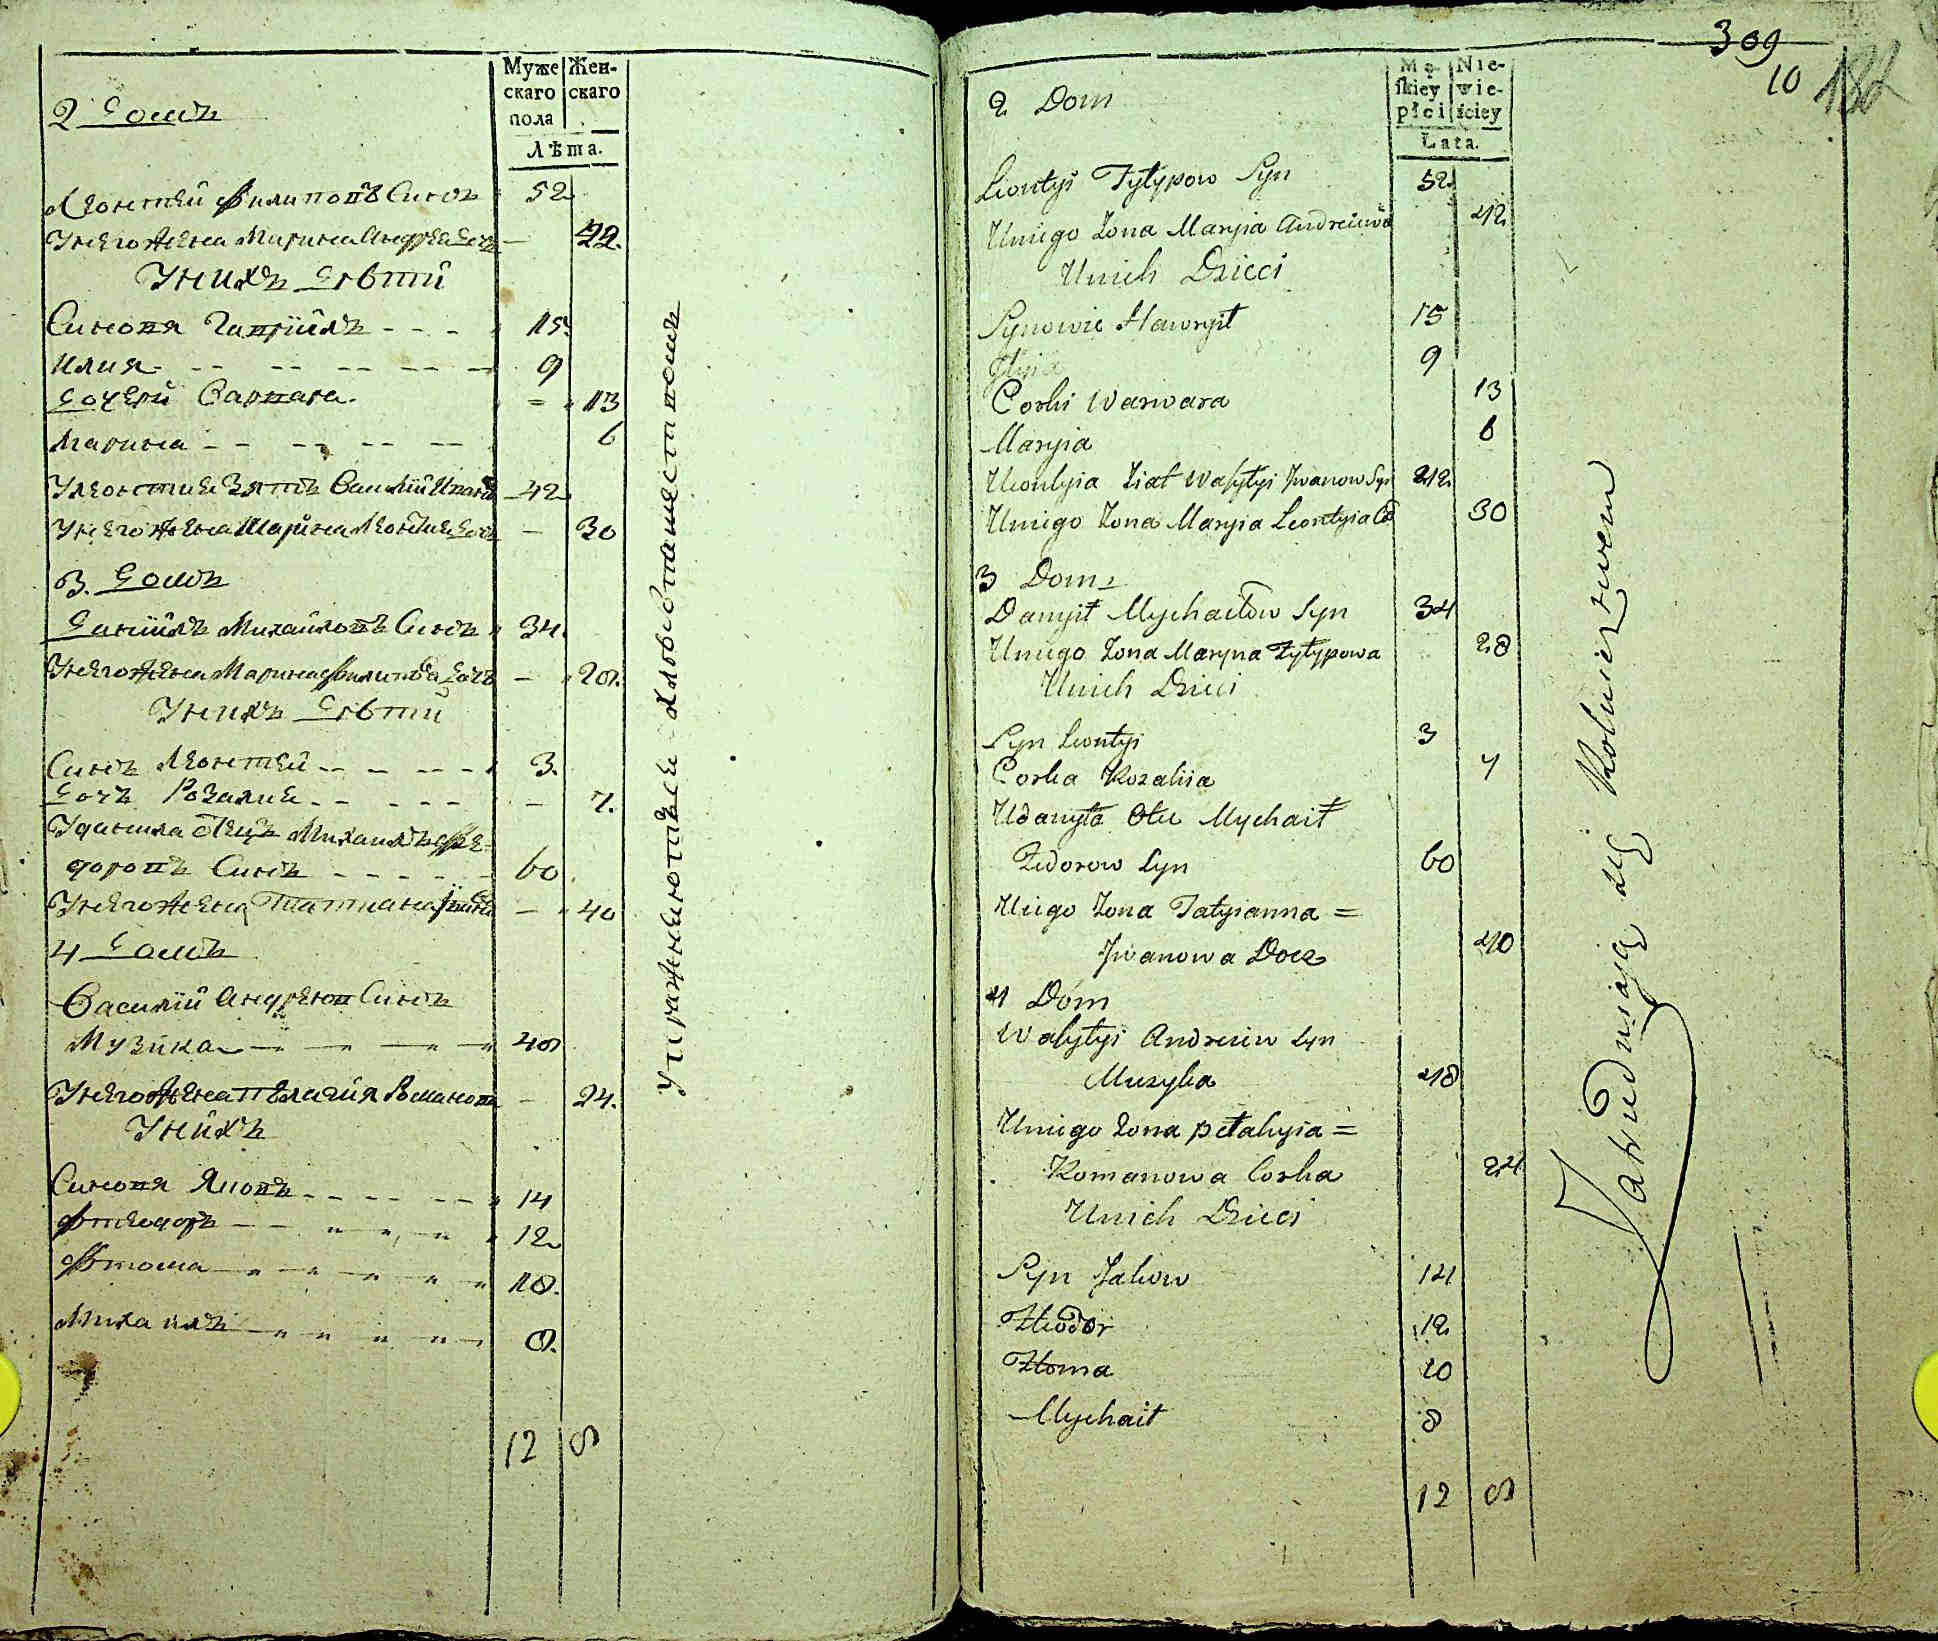 Муже Жен-
скаго скаго
пола
Лѣта.
2 Домъ
Леонтей Филиповъ Синъ 52
Унего Жена Марина Андрееева Дочъ — 42.
Унихъ Дѣтй
Синовя Гаврійлъ - - - 15.
Илия - - - - - 9
Дочерй Варвара = 13
Марина - - - - 6
Улеонтия Зять Василйй Иванов 42
Унего Жена Марйна Леонтиева Дочъ — 30
3. Домъ
Данийлъ Михайловъ Синъ 34.
Унего Жена Марина Филипова Дочъ — 28.
Унихъ Дѣтий
Синъ Леонтей - - - - 3.
Дочъ Розалия - - - - — 7.
Уданила Отецъ Михаилъ Фе-
доровъ Синъ - - - - 60
Унего Жена Татиана Iванова — 40
4 Домъ
Василий Андреюв Синъ
Музика 48
Унего Жена Пелагия Романова — 24.
Унихъ
Синовя Яковъ - - - - 14
Фтеодоръ 12
Фтома 10.
Михаилъ 8.
12 8
Упражняютъся хлѣбопашествомъ
309
10
182
Mę- Nie-
skiey wie-
płci ściey
Lata.
2 Dom
Leontyi Fylypow Syn 52
Uniego Zona Maryia Andreiuwa 42
Unich Dzieci
Synowie Hawryił 15
Jlyia 9
Corki Warwara 13
Maryia 6
Uleontyia Ziat Wasylyi Jwanow Syn 42
Uniego Zona Maryia Leontyia Co 30
3 Dom
Danyił Mychaiłow Syn 34
Uniego Zona Maryna Fylypowa 28
Unich Dzieci
Syn Leontyi 3
Corka Rozaliia 7
Udanyła Otec Mychaił
Fedorow Syn 60
Uniego Zona Tatyianna =
Jwanowa Docz 40
4 Dom
Wasylyi Andreiew Syn
Muzyka 48
Uniego Zona Pelahyia =
Romanowa Corka 24
Unich Dzieci
Syn Jakow 14
Fteodor 12
Ftoma 10
Mychaił 8
12 8
Zatrudniaią się Rolnictwem